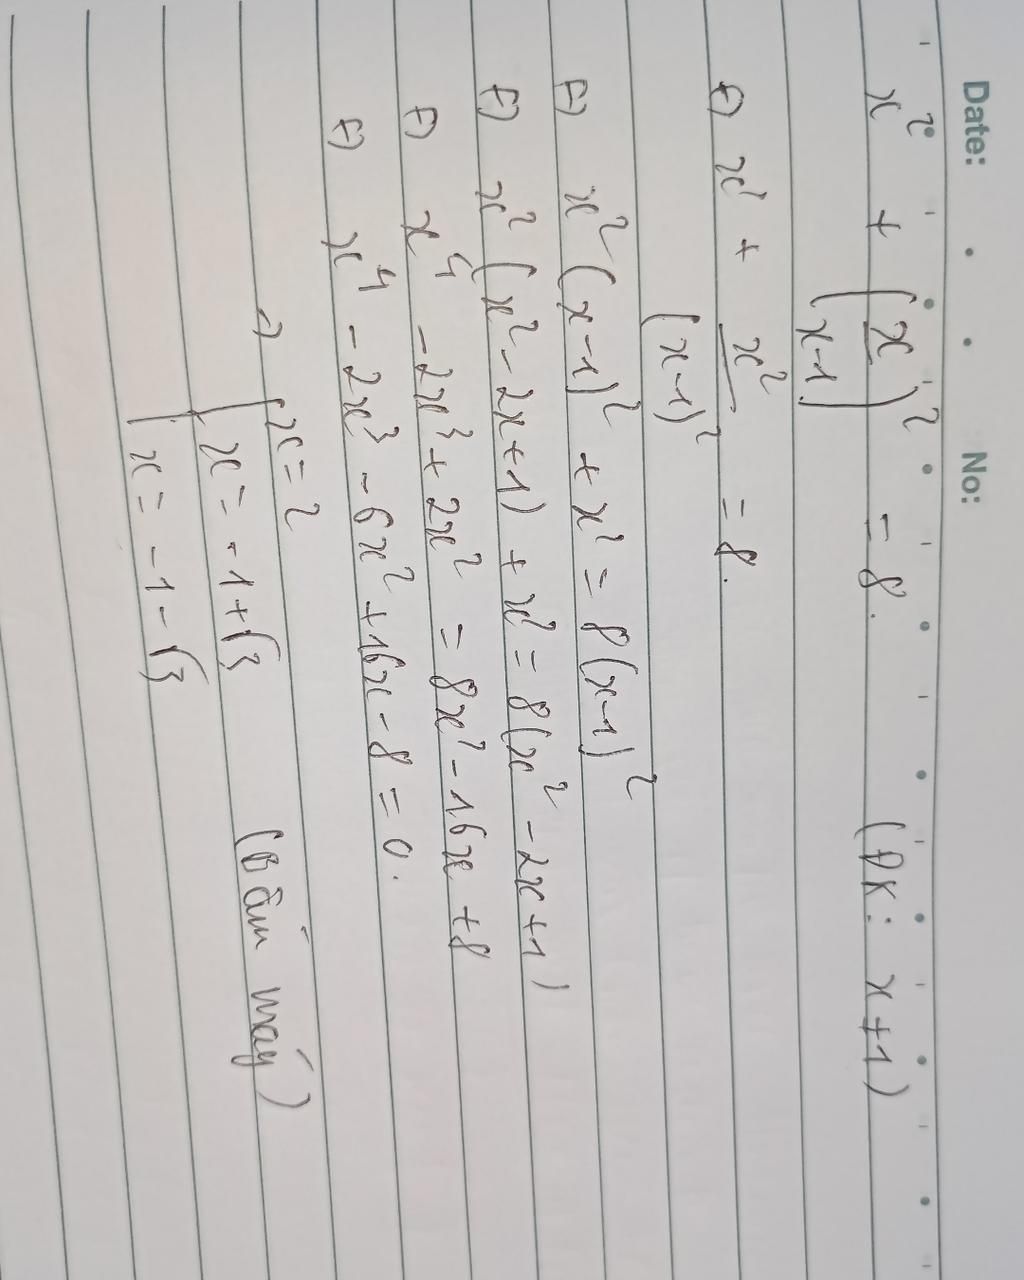 Date: No:
x² + (x/(x-1))² = 8. (ĐK: x≠1)
⇔ x² + x²/(x-1)² = 8.
⇔ x²(x-1)² + x² = 8(x-1)²
⇔ x²(x²-2x+1) + x² = 8(x²-2x+1)
⇔ x⁴ -2x³+2x² = 8x²-16x+8
⇔ x⁴ -2x³ -6x²+16x-8=0.
→ [x=2
[x=-1+√3 (Bấm máy)
[x=-1-√3